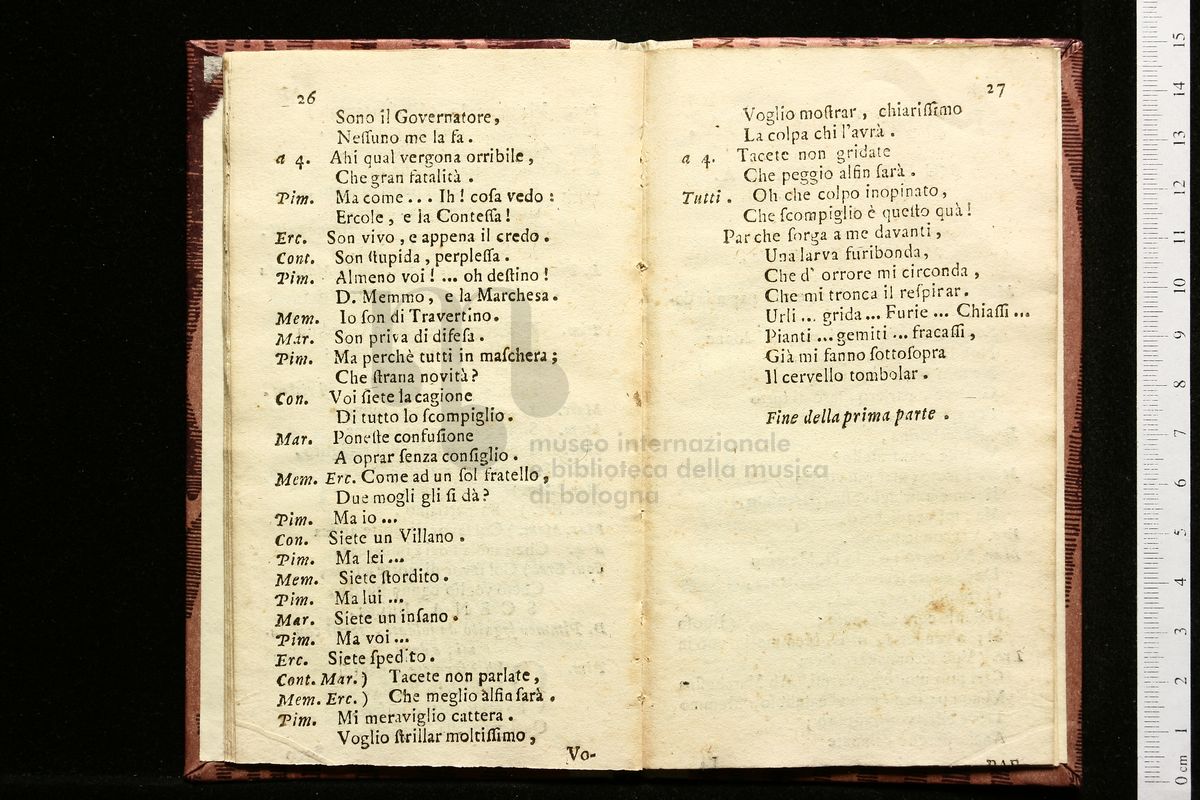 26
Sono il Governatore,
Neſſuno me la fa.
a 4. Ahi qual vergona orribile,
Che gran fatalità.
Pim. Ma come... Ih! coſa vedo:
Ercole, e la Conteſſa!
Erc. Son vivo, e appena il credo.
Cont. Son ſtupida, perpleſſa.
Pim. Almeno voi! ... oh deſtino!
D. Memmo, e la Marcheſa.
Mem. Io ſon di Travertino.
Mar. Son priva di difeſa.
Pim. Ma perchè tutti in maſchera;
Che ſtrana novità?
Con. Voi ſiete la cagione
Di tutto lo ſcompiglio.
Mar. Poneſte confuſione
A oprar ſenza conſiglio.
Mem. Erc. Come ad un ſol fratello,
Due mogli gli ſi dà?
Pim. Ma io...
Con. Siete un Villano.
Pim. Ma lei...
Mem. Siete ſtordito.
Pim. Ma lui...
Mar. Siete un inſano.
Pim. Ma voi...
Erc. Siete ſpedito.
Cont. Mar.) Tacete non parlate,
Mem. Erc.) Che meglio alfin ſarà.
Pim. Mi meraviglio cattera.
Voglio ſtrillar moltiſſimo,
Vo-
27
Voglio moſtrar, chiariſſimo
La colpa chi l'avrà.
a 4. Tacete non gridate
Che peggio alfin ſarà.
Tutti. Oh che colpo inopinato,
Che ſcompiglio è queſto quà!
Par che ſorga a me davanti,
Una larva furibonda,
Che d' orrore mi circonda,
Che mi tronca il reſpirar.
Urli... grida... Furie... Chiaſſi...
Pianti... gemiti... fracaſſi,
Già mi fanno ſottoſopra
Il cervello tombolar.
Fine della prima parte.
museo internazionale
e biblioteca della musica
di bologna
0 cm 1 2 3 4 5 6 7 8 9 10 11 12 13 14 15